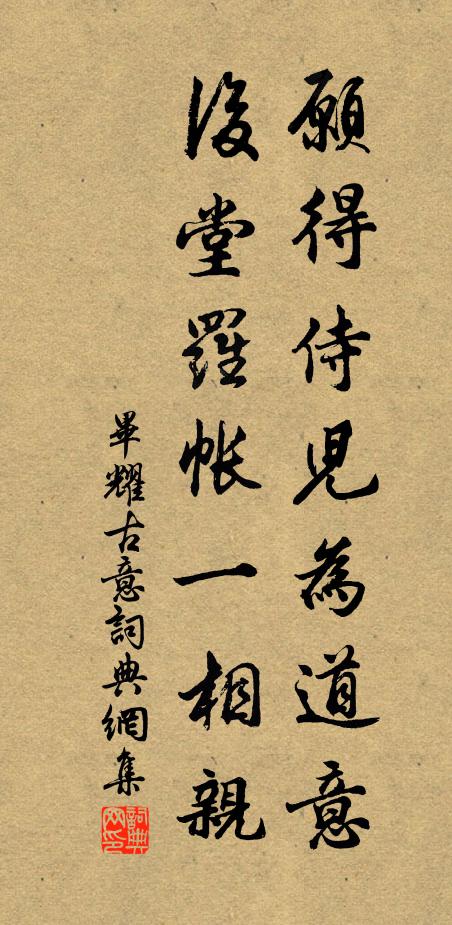 願得侍兒為道意
後堂羅帳一相親
畢耀古意詞典網集
詞典網印